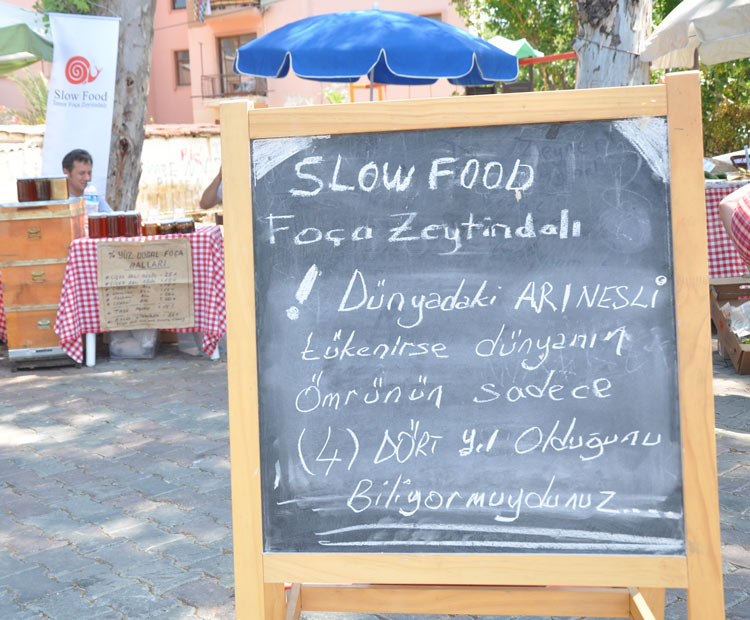 Slow Food
İzmir Foça Zeytindalı
% YÜZ DOĞAL FOÇA
BALLARI
SLOW FOOD
Foça Zeytindalı
! Dünyadaki ARI NESLİ
tükenirse dünyanın
Ömrünün sadece
(4) DÖRT yıl Olduğunu
Biliyormuydunuz.....